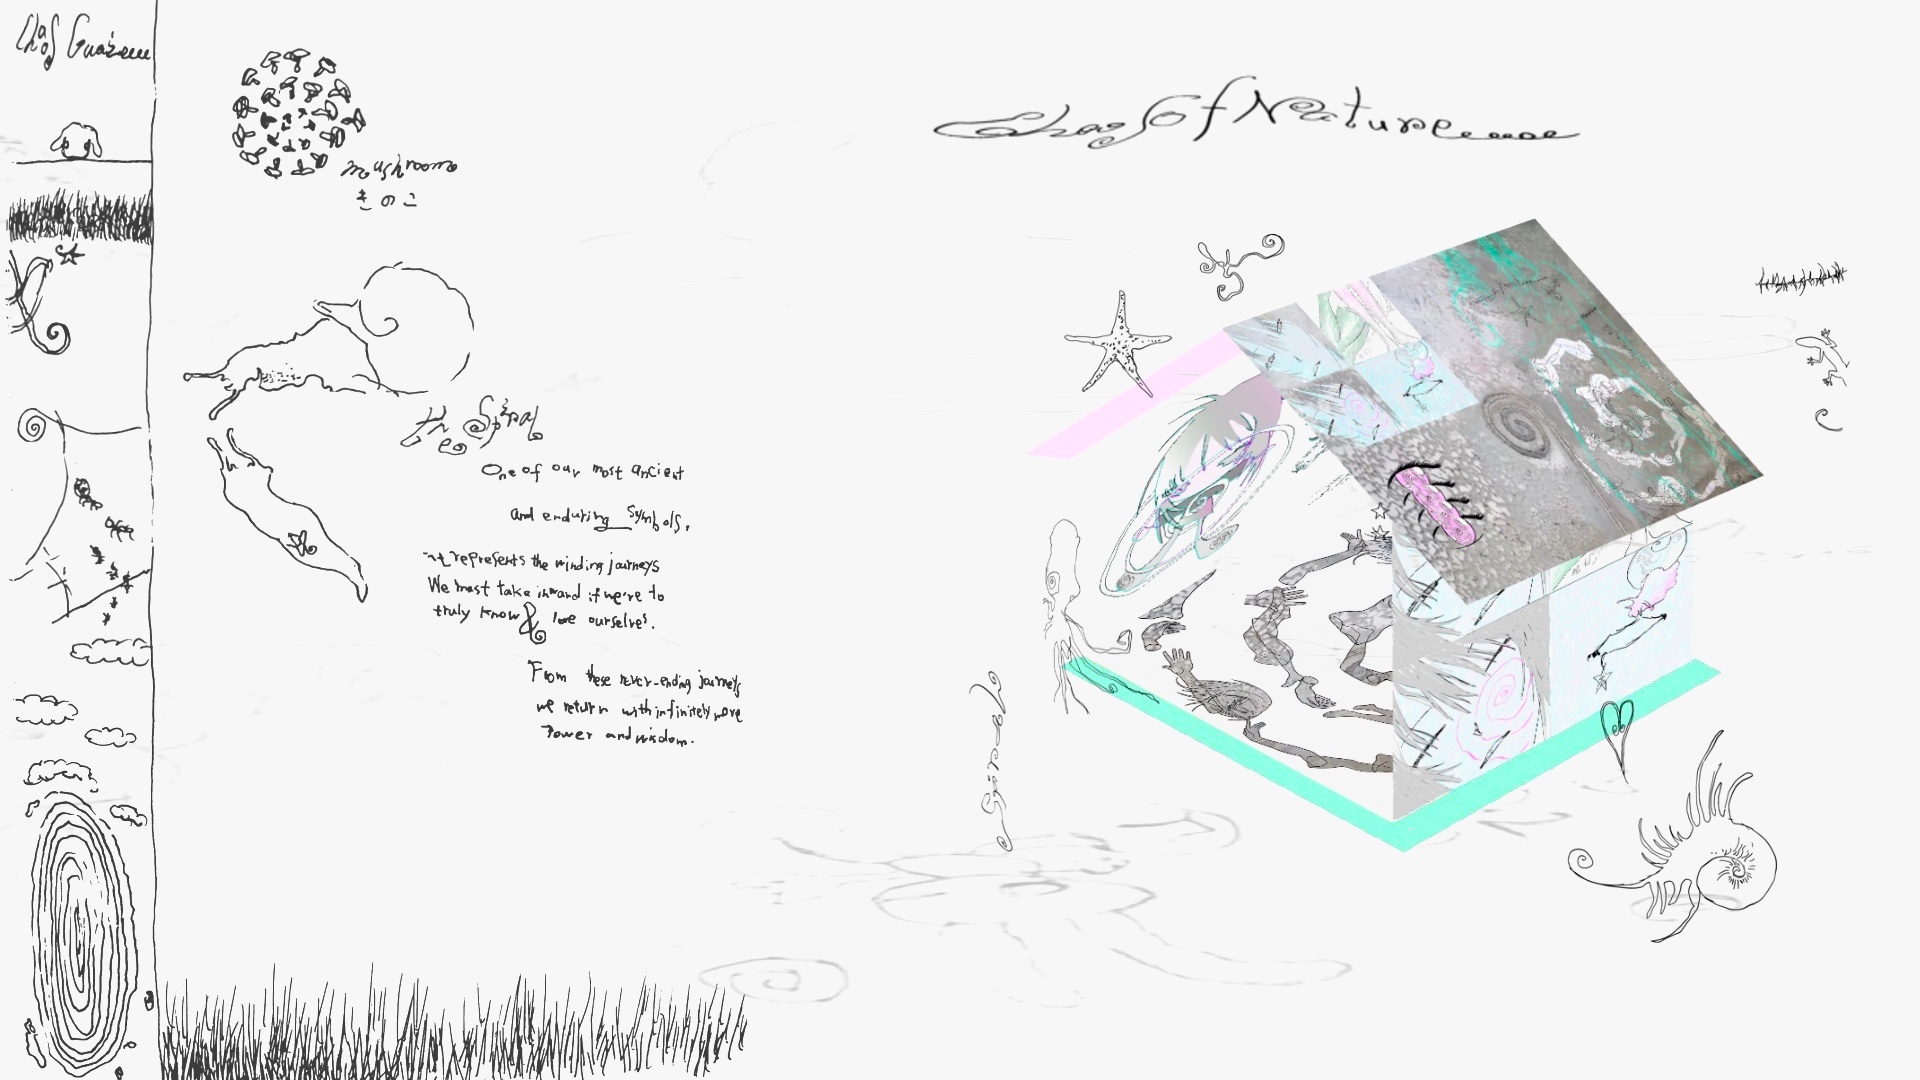 Chaos
mushroom
きのこ
the Spiral
One of our most ancient
and enduring symbols,
it represents the winding journeys
We must take inward if we're to
truly know & love ourselves.
From these never-ending journeys
we return with infinitely more
Power and wisdom.
Chaos Of Nature
Spiral